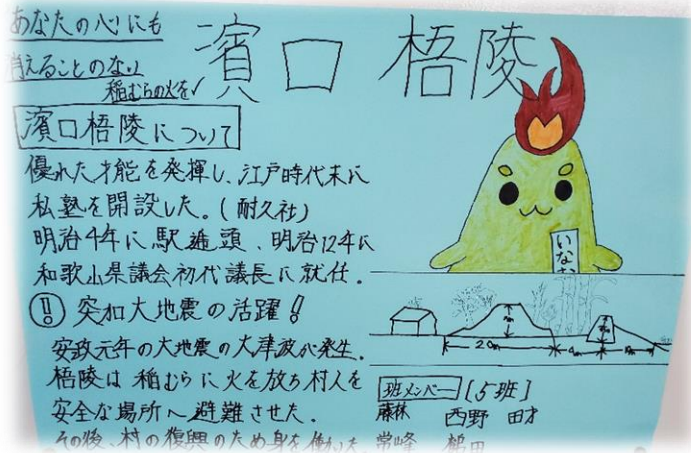 あなたの心にも
消えることのない
稲むらの火を✓
濱口 梧陵
濱口梧陵について
優れた才能を発揮し、江戸時代末に
私塾を開設した。(耐久社)
明治4年に駅逓頭、明治12年に
和歌山県議会初代議長に就任。
!! 突如大地震の活躍!
安政元年の大地震の大津波が発生。
梧陵は稲むらに火を放ち村人を
安全な場所へ避難させた。
その後、村の復興のため身を働いた。
いなむ
20m
班メンバー [5班]
藤林 西野 田才
常峰 鶴田